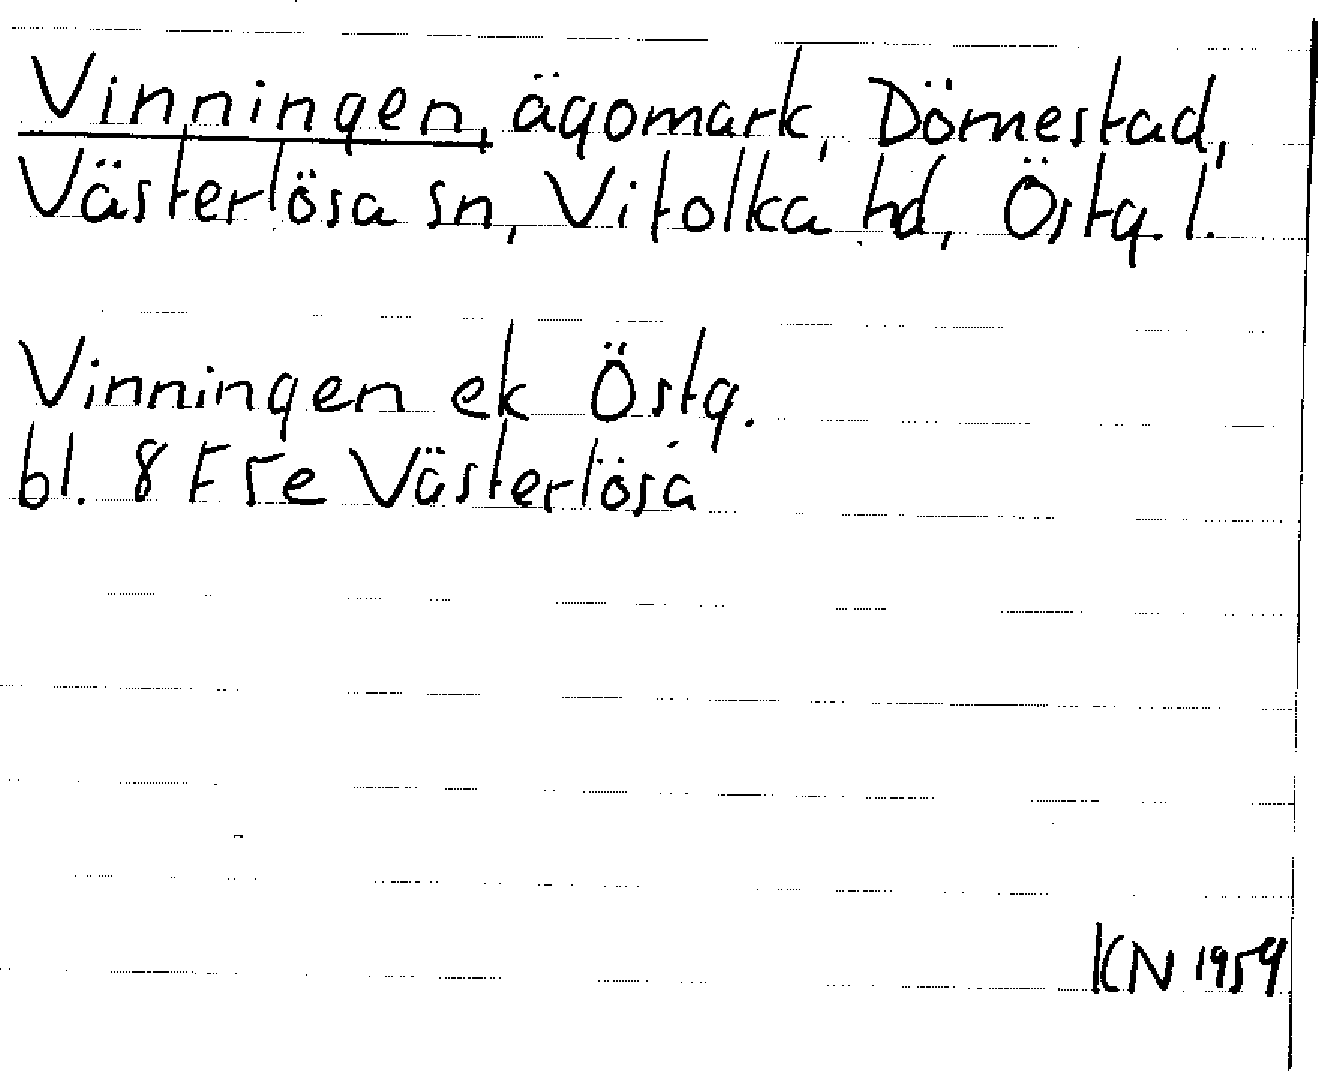 Vinningen, ägomark, Dömestad,
Västerlösa sn, Vifolka hd, Östg. l.
Vinningen ek Östg.
bl. 8 F 5e Västerlösa
KN 1959